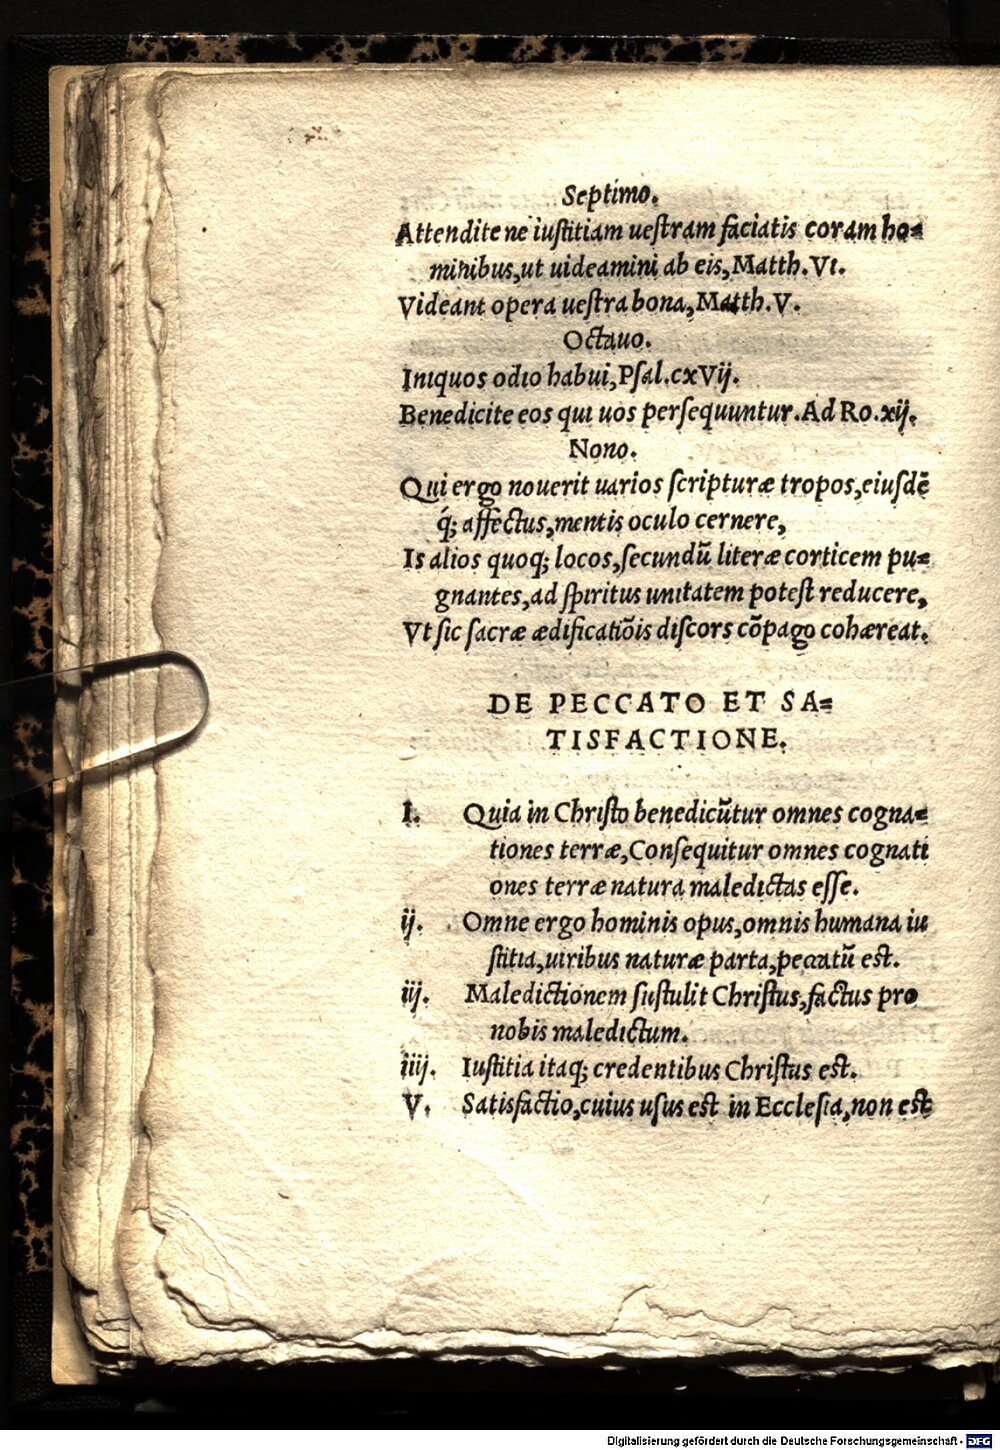 Septimo.
Attendite ne iustitiam uestram faciatis coram ho=
minibus,ut uideamini ab eis,Matth.VI.
Videant opera uestra bona,Matth.V.
Octauo.
Iniquos odio habui,Psal.cxVij.
Benedicite eos qui uos persequuntur.Ad Ro.xij.
Nono.
Qui ergo nouerit uarios scripturæ tropos,eiusdē
q́; affectus,mentis oculo cernere,
Is alios quoq; locos,secundū literæ corticem pu=
gnantes,ad spiritus unitatem potest reducere,
Vt sic sacræ ædificatiōis discors cōpago cohæreat.
DE PECCATO ET SA=
TISFACTIONE.
I. Quia in Christo benedicūtur omnes cogna=
tiones terræ,Consequitur omnes cognati
ones terræ natura maledictas esse.
ij. Omne ergo hominis opus,omnis humana iu
stitia,uiribus naturæ parta,peccatū est.
iij. Maledictionem sustulit Christus,factus pro
nobis maledictum.
iiij. Iustitia itaq; credentibus Christus est.
V. Satisfactio,cuius usus est in Ecclesia,non est
Digitalisierung gefördert durch die Deutsche Forschungsgemeinschaft - DFG